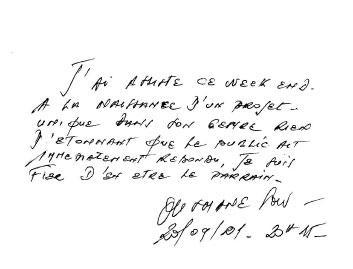 J'AI ASSISTE CE WEEK END.
A LA NAISSANCE D'UN PROJET.
UNIQUE DANS SON GENRE RIEN
D'ETONNANT QUE LE PUBLIC AIT
IMMEDIATEMENT REPONDU, JE SUIS
FIER D'EN ETRE LE PARRAIN.
OUSMANE SOW
20/09/